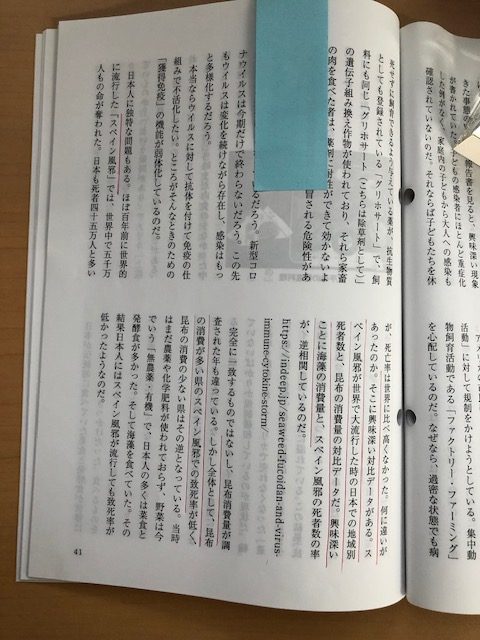 報告書を見ると、興味深い現象
が書かれていた。子どもの感染者にほとんど重症化
した例がなく、家庭内の子どもから大人への感染も
確認されていないのだ。それならば子どもたちを休
活動」に対して規制をかけようとしている。集中動
物飼育活動である「ファクトリー・ファーミング」
を心配しているのだ。なぜなら、過密な状態でも病
死せずに飼育できるように与えている薬が、抗生物質
としても登録されている「グリホサート」で、飼
料にも同じ「グリホサート（こちらは除草剤として）」
の遺伝子組み換え作物が使われており、それら家畜
の肉を食べた者は、薬剤に耐性ができて効かないよ
冒される危険性があ
るだろう。新型コロ
ナウイルスは今期だけで終わらないだろう。この先
もウイルスは変化を続けながら存在し、感染はもっ
と多様化するだろう。
本当ならウイルスに対して抗体を付けて免疫の仕
組みで不活化したい。ところがそんなときのための
「獲得免疫」の機能が弱体化しているのだ。
日本人に独特な問題もある。ほぼ百年前に世界的
に流行した「スペイン風邪」では、世界中で五千万
人もの命が奪われた。日本も死者四十五万人と多い
が、死亡率は世界に比べ高くなかった。何に違いが
あったのか。そこに興味深い対比データがある。ス
ペイン風邪が世界で大流行した時の日本での地域別
死者数と、昆布の消費量の対比データだ。興味深い
ことに海藻の消費量と、スペイン風邪の死者数の率
が、逆相関しているのだ。
https://indeep.jp/seaweed-fucoidan-and-virus-
immune-cytokine-storm/
完全に一致するものではないし、昆布消費量が調
査された年も違っている。しかし全体として、昆布
の消費が多い県のスペイン風邪での致死率が低く、
昆布の消費の少ない県はその逆となっている。当時
はまだ農薬や化学肥料が使われておらず、野菜は今
でいう「無農薬・有機」で、日本人の多くは菜食と
発酵食が多かった。そして海藻を食べていた。その
結果日本人にはスペイン風邪が流行しても致死率が
低かったようなのだ。
41